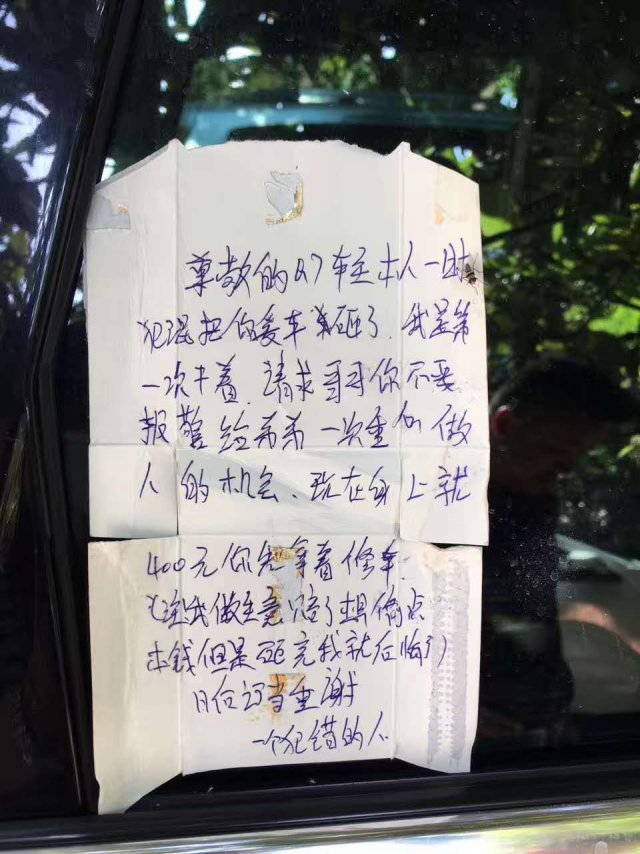 尊敬的Q7车主本人一时
犯混把你爱车砸了.我是第
一次干着.请求哥哥你不要
报警给弟弟一次重的做
人的机会、现在身上就
400元你先拿着修车.
我做生意赔了想偷点
本钱但是砸完我就后悔了)
日后订当重谢
一个犯错的人